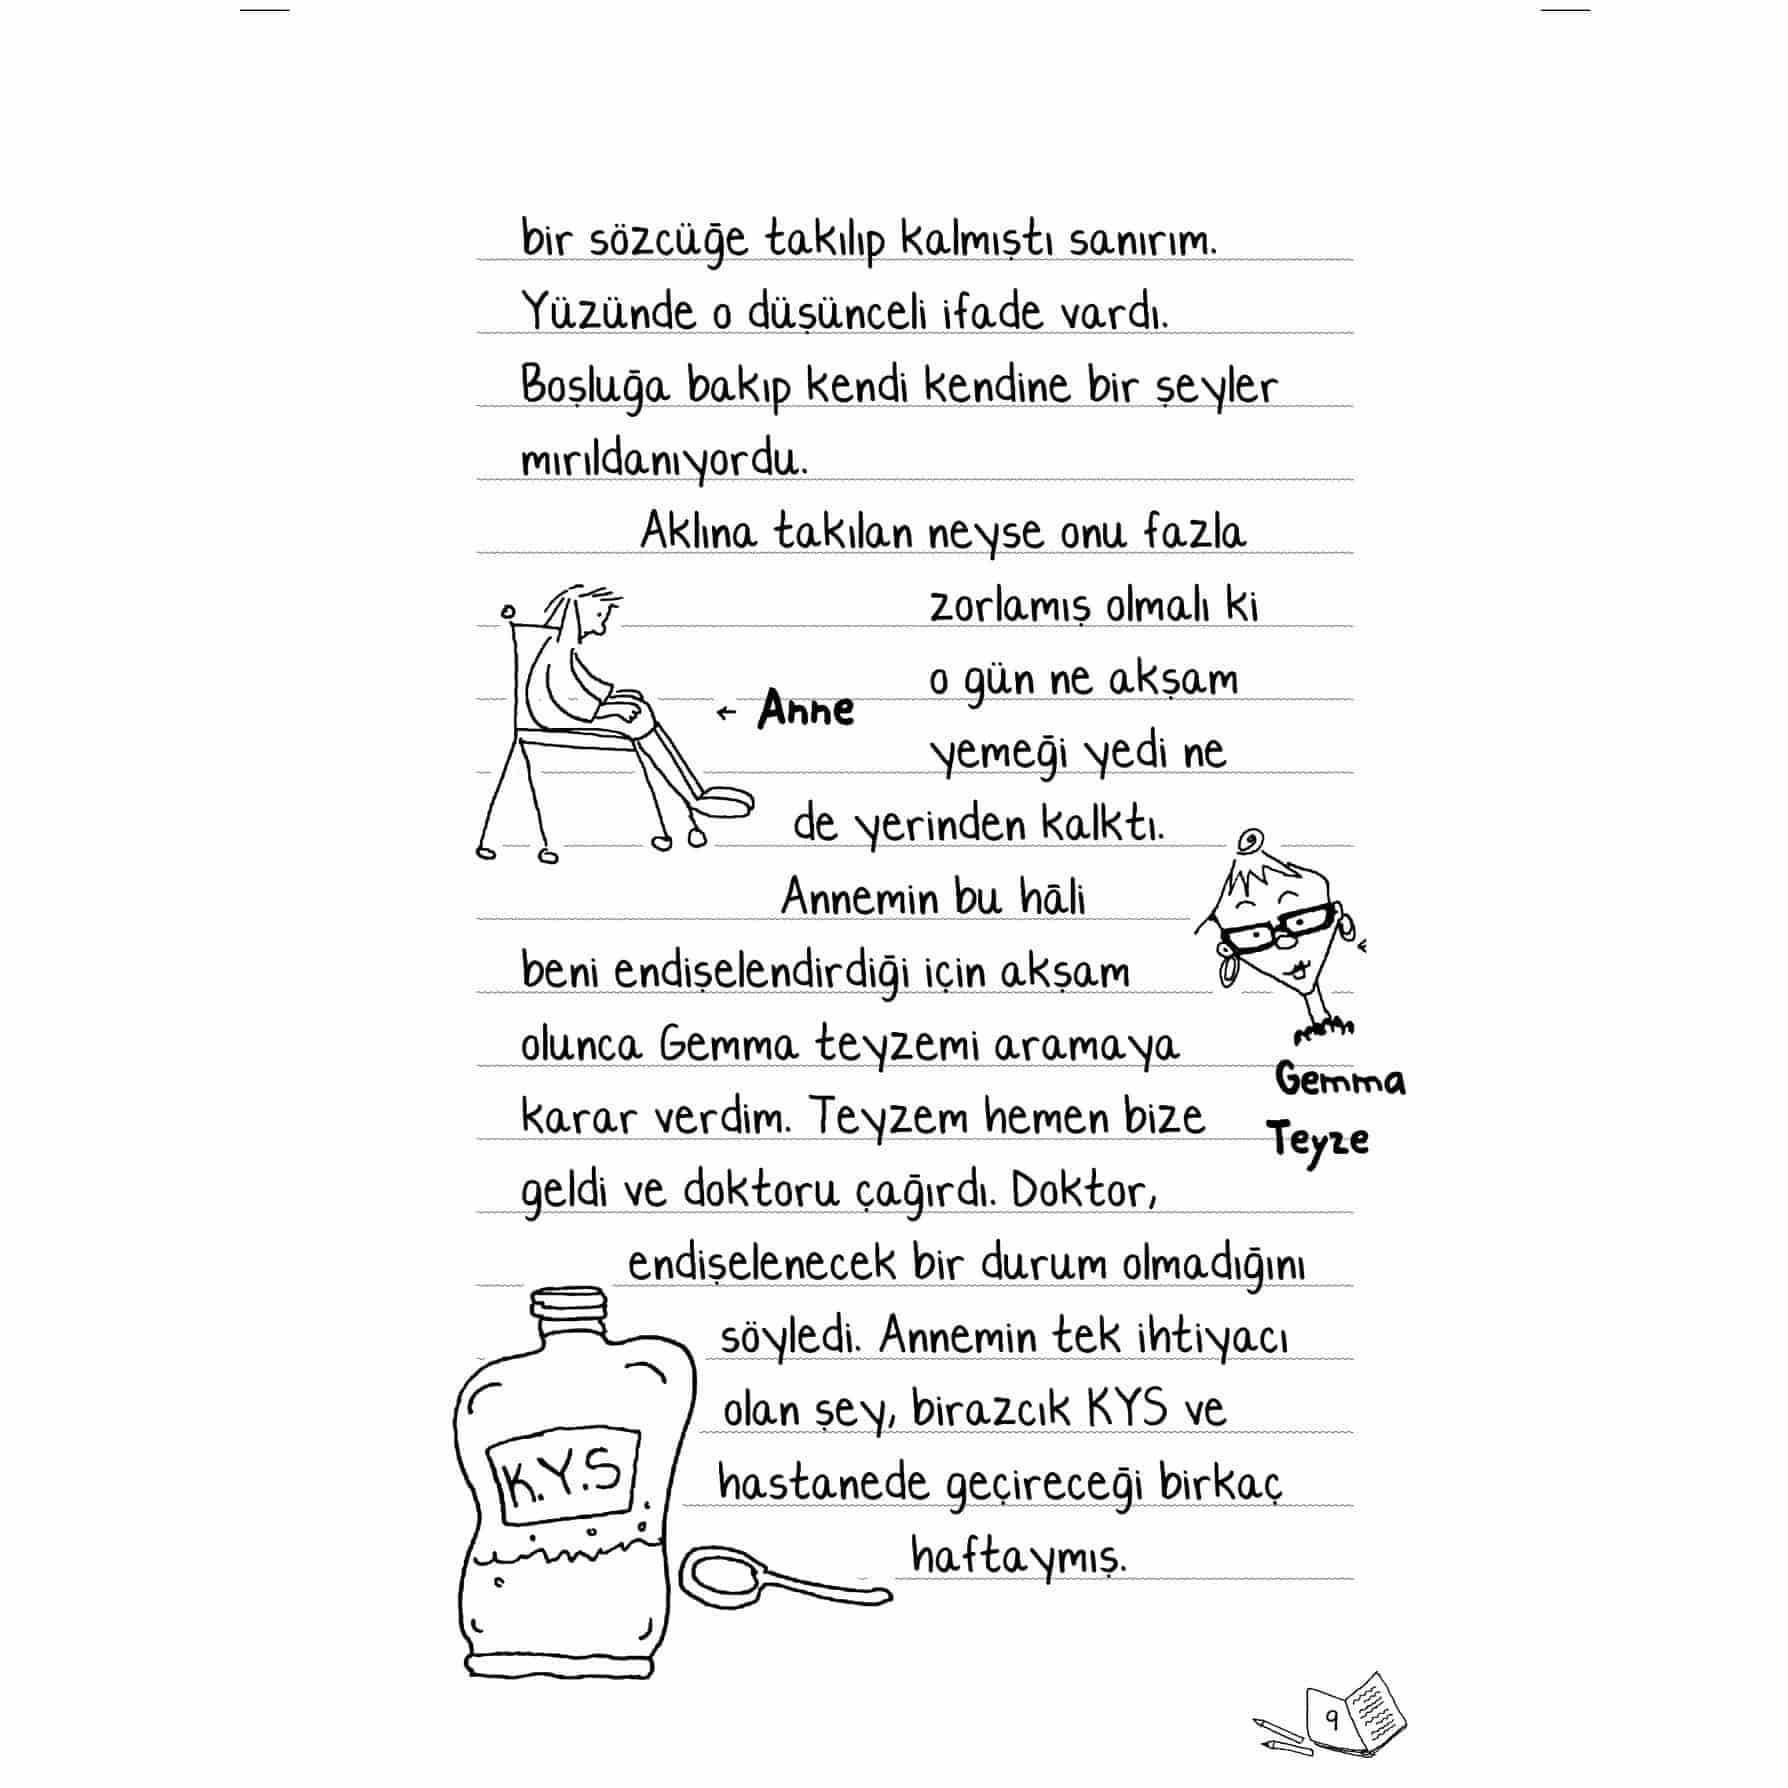 bir sözcüğe takılıp kalmıştı sanırım.
Yüzünde o düşünceli ifade vardı.
Boşluğa bakıp kendi kendine bir şeyler
mırıldanıyordu.
Aklına takılan neyse onu fazla
zorlamış olmalı ki
o gün ne akşam
← Anne
yemeği yedi ne
de yerinden kalktı.
Annemin bu hâli
beni endişelendirdiği için akşam
olunca Gemma teyzemi aramaya
Gemma
karar verdim. Teyzem hemen bize
Teyze
geldi ve doktoru çağırdı. Doktor,
endişelenecek bir durum olmadığını
söyledi. Annemin tek ihtiyacı
olan şey, birazcık KYS ve
K.Y.S
hastanede geçireceği birkaç
haftaymış.
9